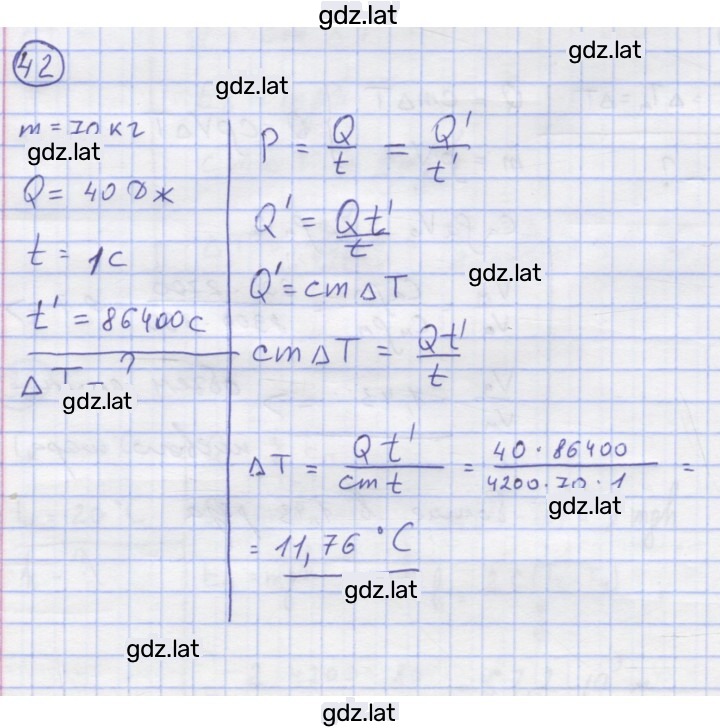 gdz.lat
gdz.lat
42
gdz.lat
m = 70 кг
gdz.lat
Q = 40 Дж
t = 1с
t' = 86400с
ΔT - ?
gdz.lat
P = Q/t = Q'/t'
Q' = Qt'/t
gdz.lat
Q' = cmΔT
cmΔT = Qt'/t
ΔT = Qt'/cmt = 40·86400/4200·70·1 =
gdz.lat
= 11,76 °C
gdz.lat
gdz.lat
gdz.lat